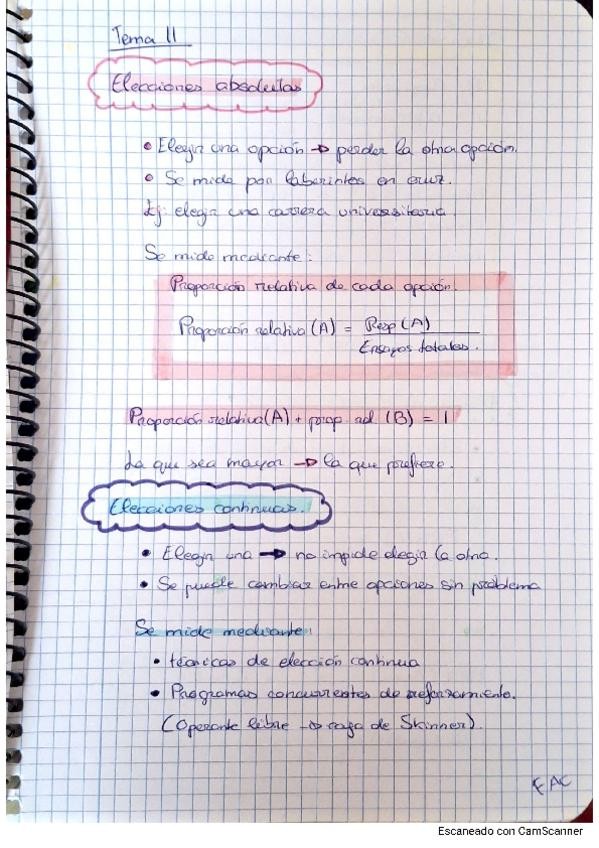 Tema 11
Elecciones absolutas
• Elegir una opción → perder la otra opción.
• Se mide por laberintos en cruz.
Ej: elegir una carrera universitaria.
Se mide mediante:
Proporción relativa de cada opción.
Proporción relativa (A) = Resp (A)
Ensayos totales.
Proporción relativa (A) + prop rel (B) = 1
La que sea mayor → la que prefiere.
Elecciones continuas.
• Elegir una → no impide elegir la otra.
• Se puede cambiar entre opciones sin problema
Se mide mediante:
• técnicas de elección continua
• Programas concurrentes de reforzamiento.
(Operante libre → caja de Skinner).
EAC
Escaneado con CamScanner